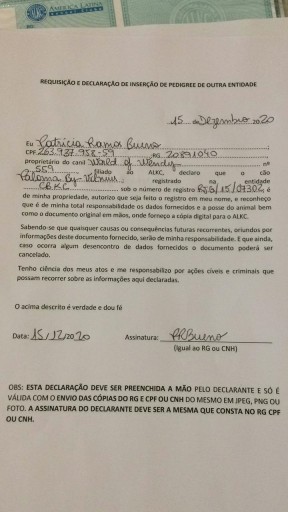 AMÉRICA LATINA
REQUISIÇÃO E DECLARAÇÃO DE INSERÇÃO DE PEDIGREE DE OUTRA ENTIDADE
15 de Dezembro 2020
Eu Patrícia Ramos Bueno
CPF 263.937.958-59 RG 20891040
proprietário do canil World of Wendy nº
559 filiado ao ALKC, declaro que o cão
Paloma By registrado na entidade
CBKC sob o número de registro RJG/15/07302, é
de minha propriedade, autorizo que seja feito o registro em meu nome, e reconheço
que é de minha total responsabilidade os dados fornecidos e a posse do animal bem
como o documento original em mãos, onde forneço a cópia digital para o ALKC.
Sabendo-se que quaisquer causas ou consequências futuras recorrentes, oriundos por
informações deste documento fornecido, serão de minha responsabilidade. E que ainda,
caso ocorra algum desencontro de dados fornecidos o documento poderá ser
cancelado.
Tenho ciência dos meus atos e me responsabilizo por ações cíveis e criminais que
possam recorrer sobre as informações aqui declaradas.
O acima descrito é verdade e dou fé
Data: 15/12/2020 Assinatura: PRBueno
(Igual ao RG ou CNH)
OBS: ESTA DECLARAÇÃO DEVE SER PREENCHIDA A MÃO PELO DECLARANTE E SÓ É
VÁLIDA COM O ENVIO DAS CÓPIAS DO RG E CPF OU CNH DO MESMO EM JPEG, PNG OU
FOTO. A ASSINATURA DO DECLARANTE DEVE SER A MESMA QUE CONSTA NO RG CPF
OU CNH.